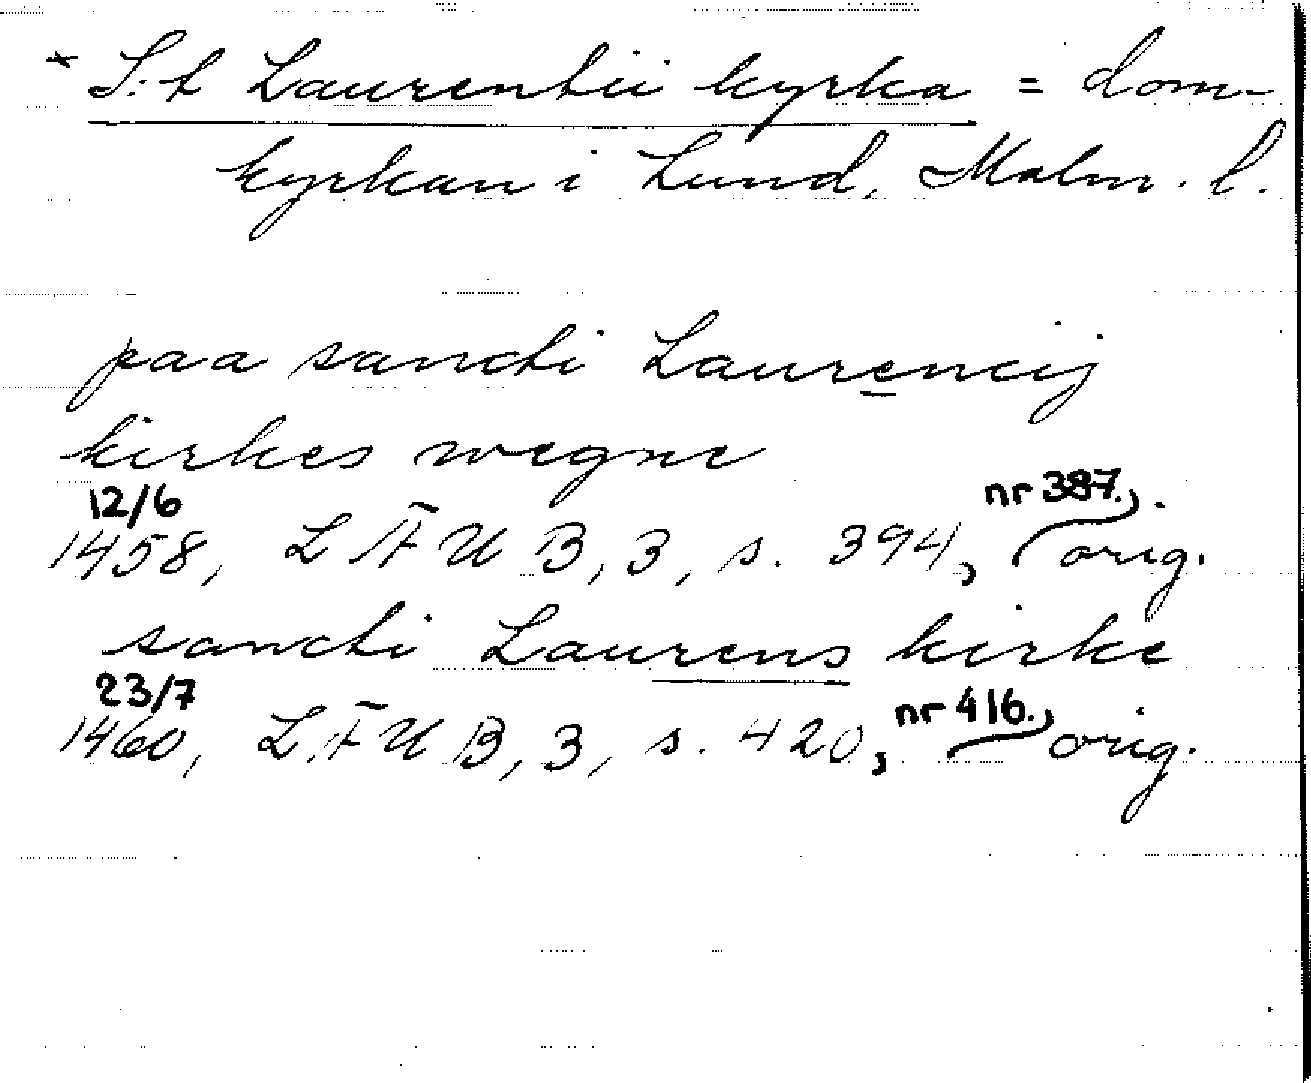 * S:t Laurentii kyrka = dom-
kyrkan i Lund, Malm. l.
paa sancti Laurencij
kirkes wegne
12/6 nr 387.
1458, LÄUB, 3, s. 394, orig.
sancti Laurens kirke
23/7 nr 416.
1460, LÄUB, 3, s. 420, orig.